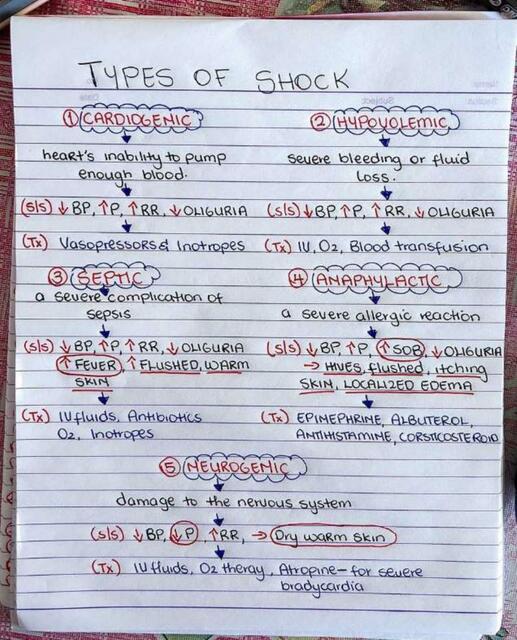 TYPES OF SHOCK
① CARDIOGENIC
heart's inability to pump
enough blood.
(s/s) ↓BP, ↑P, ↑RR, ↓OLIGURIA
(Tx) Vasopressors & Inotropes
② HYPOVOLEMIC
severe bleeding or fluid
loss.
(s/s) ↓BP, ↑P, ↑RR, ↓OLIGURIA
(Tx) IV, O2, Blood transfusion
③ SEPTIC
a severe complication of
sepsis
(s/s) ↓BP, ↑P, ↑RR, ↓OLIGURIA
↑FEVER, ↑FLUSHED, WARM
SKIN
(Tx) IV fluids, Antibiotics
O2, Inotropes
④ ANAPHYLACTIC
a severe allergic reaction
(s/s) ↓BP, ↑P, ↑SOB, ↓OLIGURIA
→ HIVES, flushed, itching
SKIN, LOCALIZED EDEMA
(Tx) EPINEPHRINE, ALBUTEROL,
ANTIHISTAMINE, CORSTICOSTEROID
⑤ NEUROGENIC
damage to the nervous system
(s/s) ↓BP, ↓P, ↑RR, → Dry warm skin
(Tx) IV fluids, O2 theray, Atropine - for severe
bradycardia